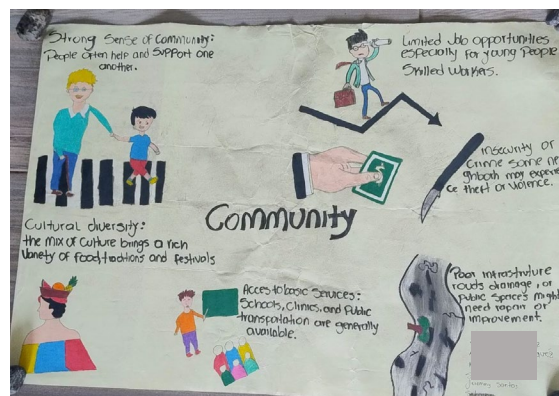 Strong Sense of Community:
People often help and support one
another.
Limited Job opportunities
especially for young People
Skilled workers.
Insecurity or
Crime some ne
ghboah may experie
ce theft or violence.
Community
Cultural diversity:
the mix of Culture brings a rich
Variety of food, traditions and festivals
Access to basic Services:
Schools, Clinics, and Public
transportation are generally
available.
Poor infrastruture
roads drainage, or
Public Spaces might
need repair or
improvement.